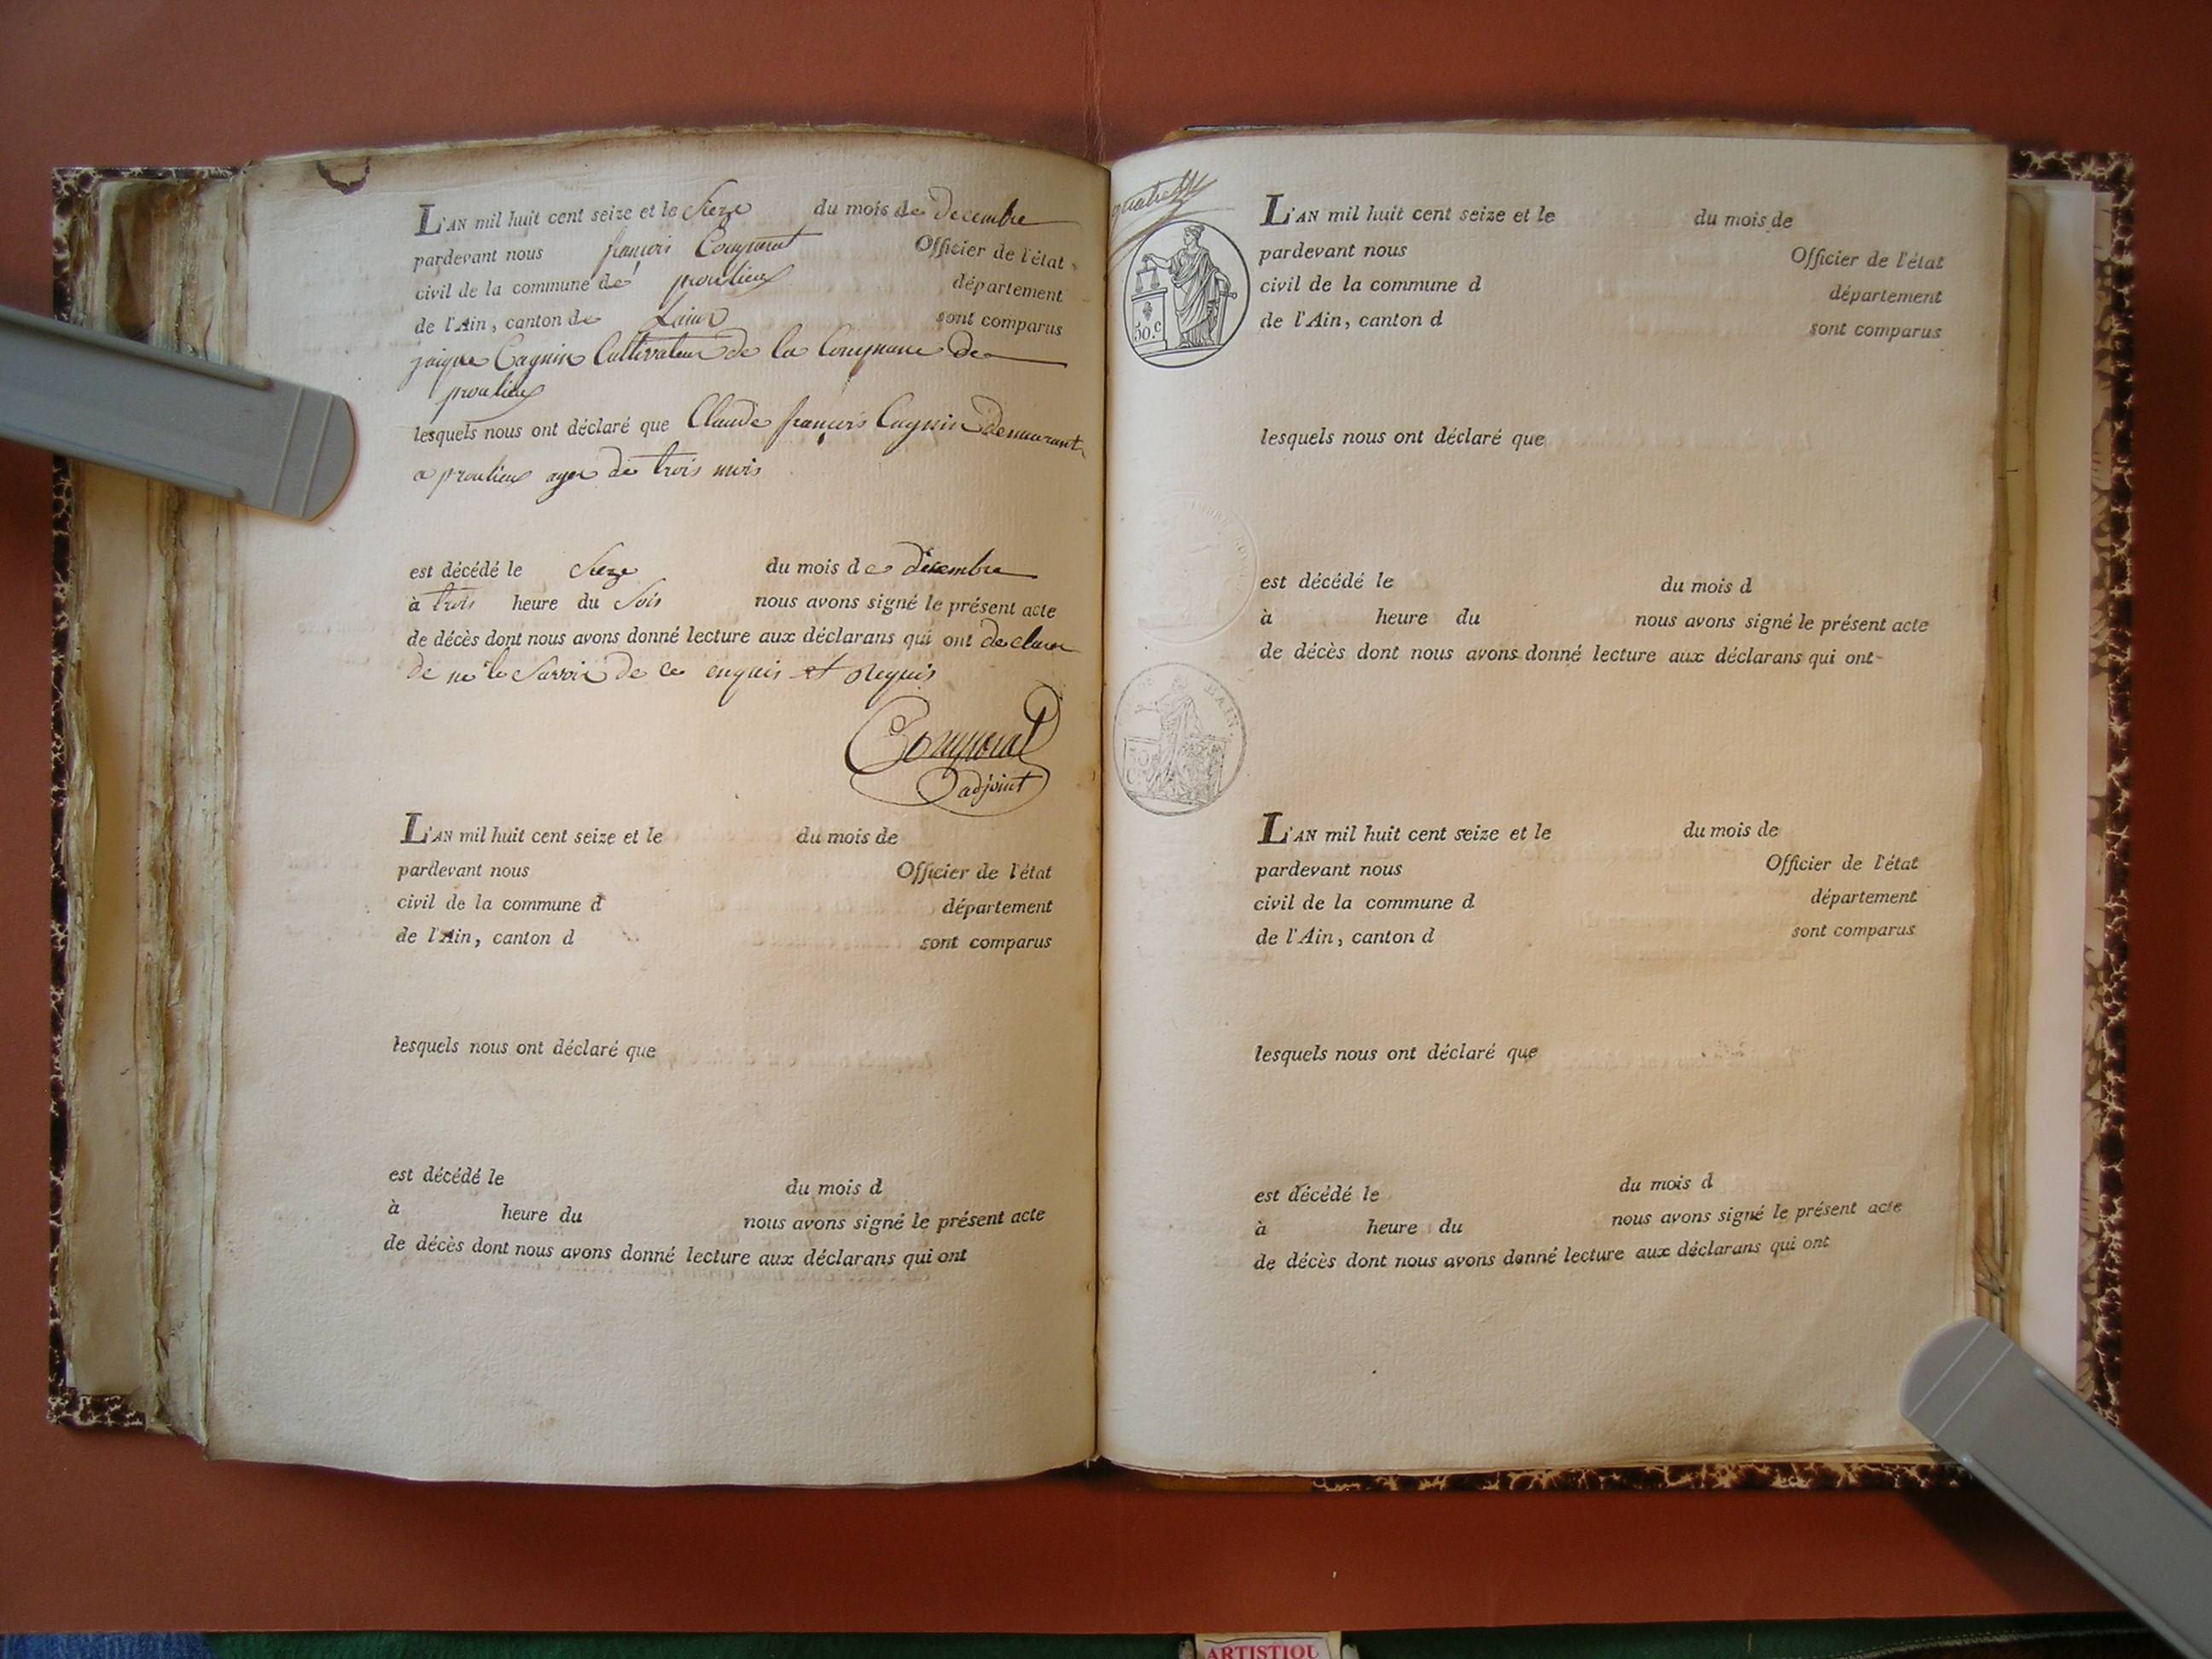 L'AN mil huit cent seize et le Seze du mois de decembre
pardevant nous françois Officier de l'état
civil de la commune de proulieux département
de l'Ain, canton de sont comparus
jaique Cagnin Cultivateur de la Commune de
proulieux
lesquels nous ont déclaré que Claude françois Cagnin demeurant
a proulieux agee de trois mois
est décédé le Seze du mois de decembre
à trois heure du Soir nous avons signé le présent acte
de décès dont nous avons donné lecture aux déclarans qui ont declarer
de ne le Savoir de ce enquis et Requis
adjoint
L'AN mil huit cent seize et le du mois de
pardevant nous Officier de l'état
civil de la commune d département
de l'Ain, canton d sont comparus
lesquels nous ont déclaré que
est décédé le du mois d
à heure du nous avons signé le présent acte
de décès dont nous avons donné lecture aux déclarans qui ont
50.c
L'AN mil huit cent seize et le du mois de
pardevant nous Officier de l'état
civil de la commune d département
de l'Ain, canton d sont comparus
lesquels nous ont déclaré que
est décédé le du mois d
à heure du nous avons signé le présent acte
de décès dont nous avons donné lecture aux déclarans qui ont
L'AN mil huit cent seize et le du mois de
pardevant nous Officier de l'état
civil de la commune d département
de l'Ain, canton d sont comparus
lesquels nous ont déclaré que
est décédé le du mois d
à heure du nous avons signé le présent acte
de décès dont nous avons donné lecture aux déclarans qui ont
ARTISTIQU